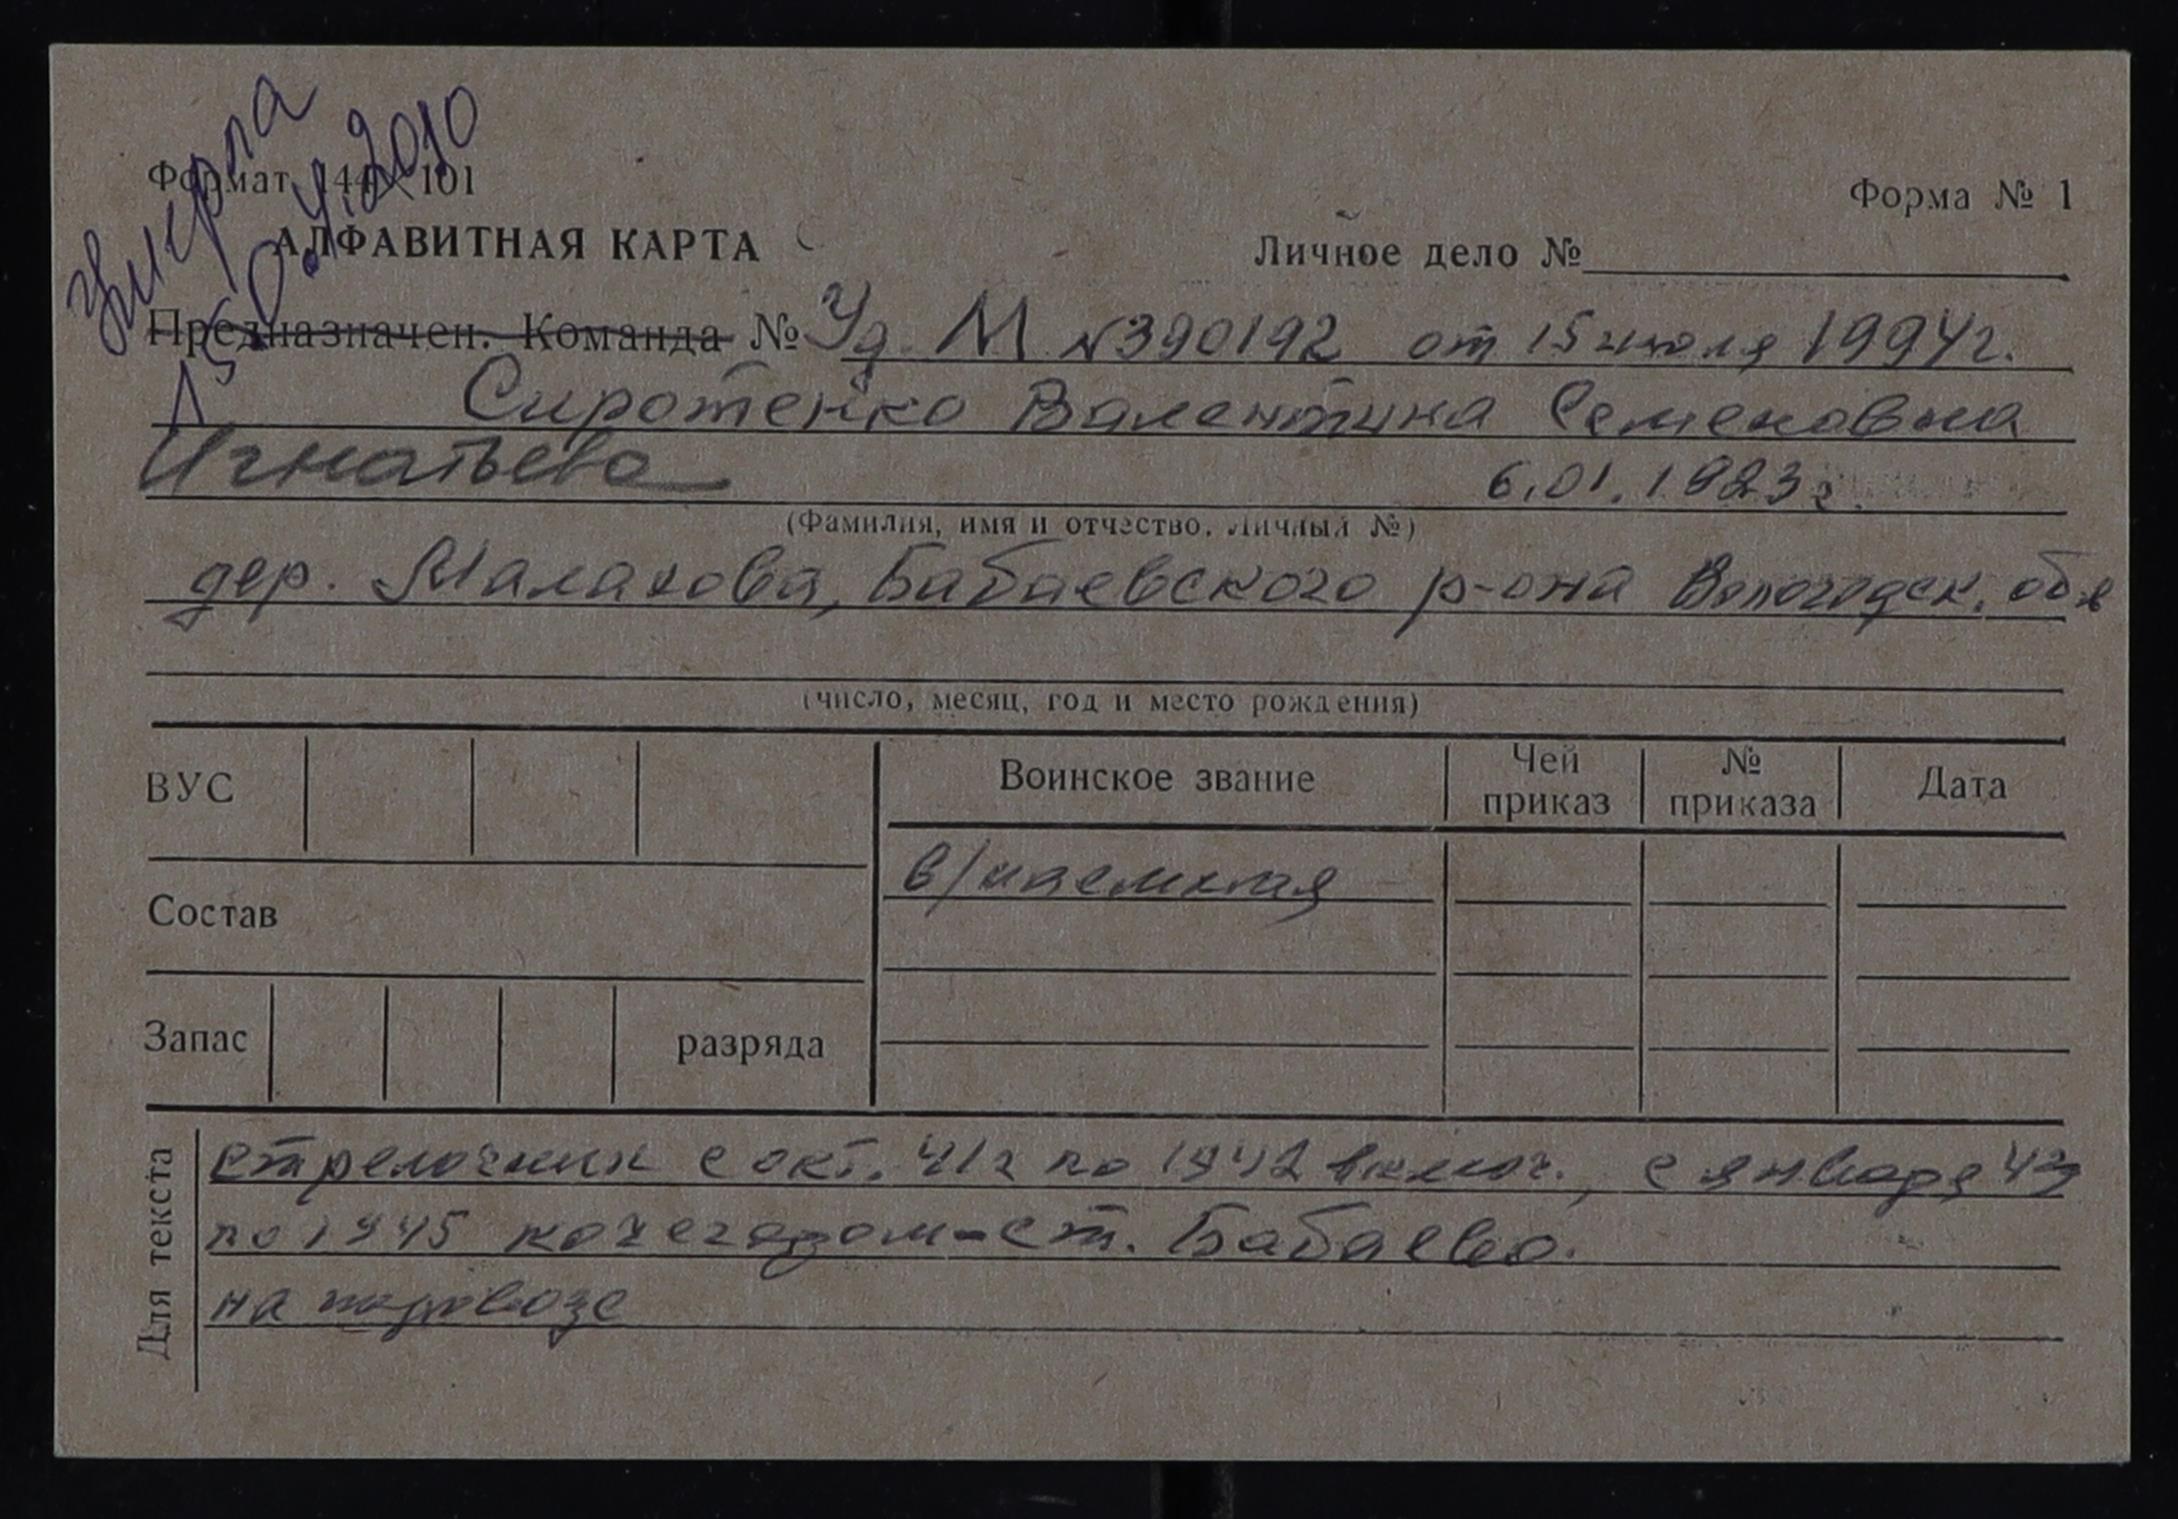 умерла
15.04.2010
Формат 144×101
Форма № 1
АЛФАВИТНАЯ КАРТА
Личное дело №
Предназначен. Команда № Уд. М №390192 от 15 июля 1994г.
Сиротенко Валентина Семеновна
Игнатьева 6.01.1923г.
(Фамилия, имя и отчество, личный №)
дер. Малахова, Бабаевского р-она Вологодск. обл
(число, месяц, год и место рождения)
ВУС
Воинское звание
Чей приказ
№ приказа
Дата
в/наемная
Состав
Запас
разряда
Для текста
стрелочник с окт. 41г по 1942 включ., с января 43
по 1945 кочегаром-ст. Бабаево.
на паровозе